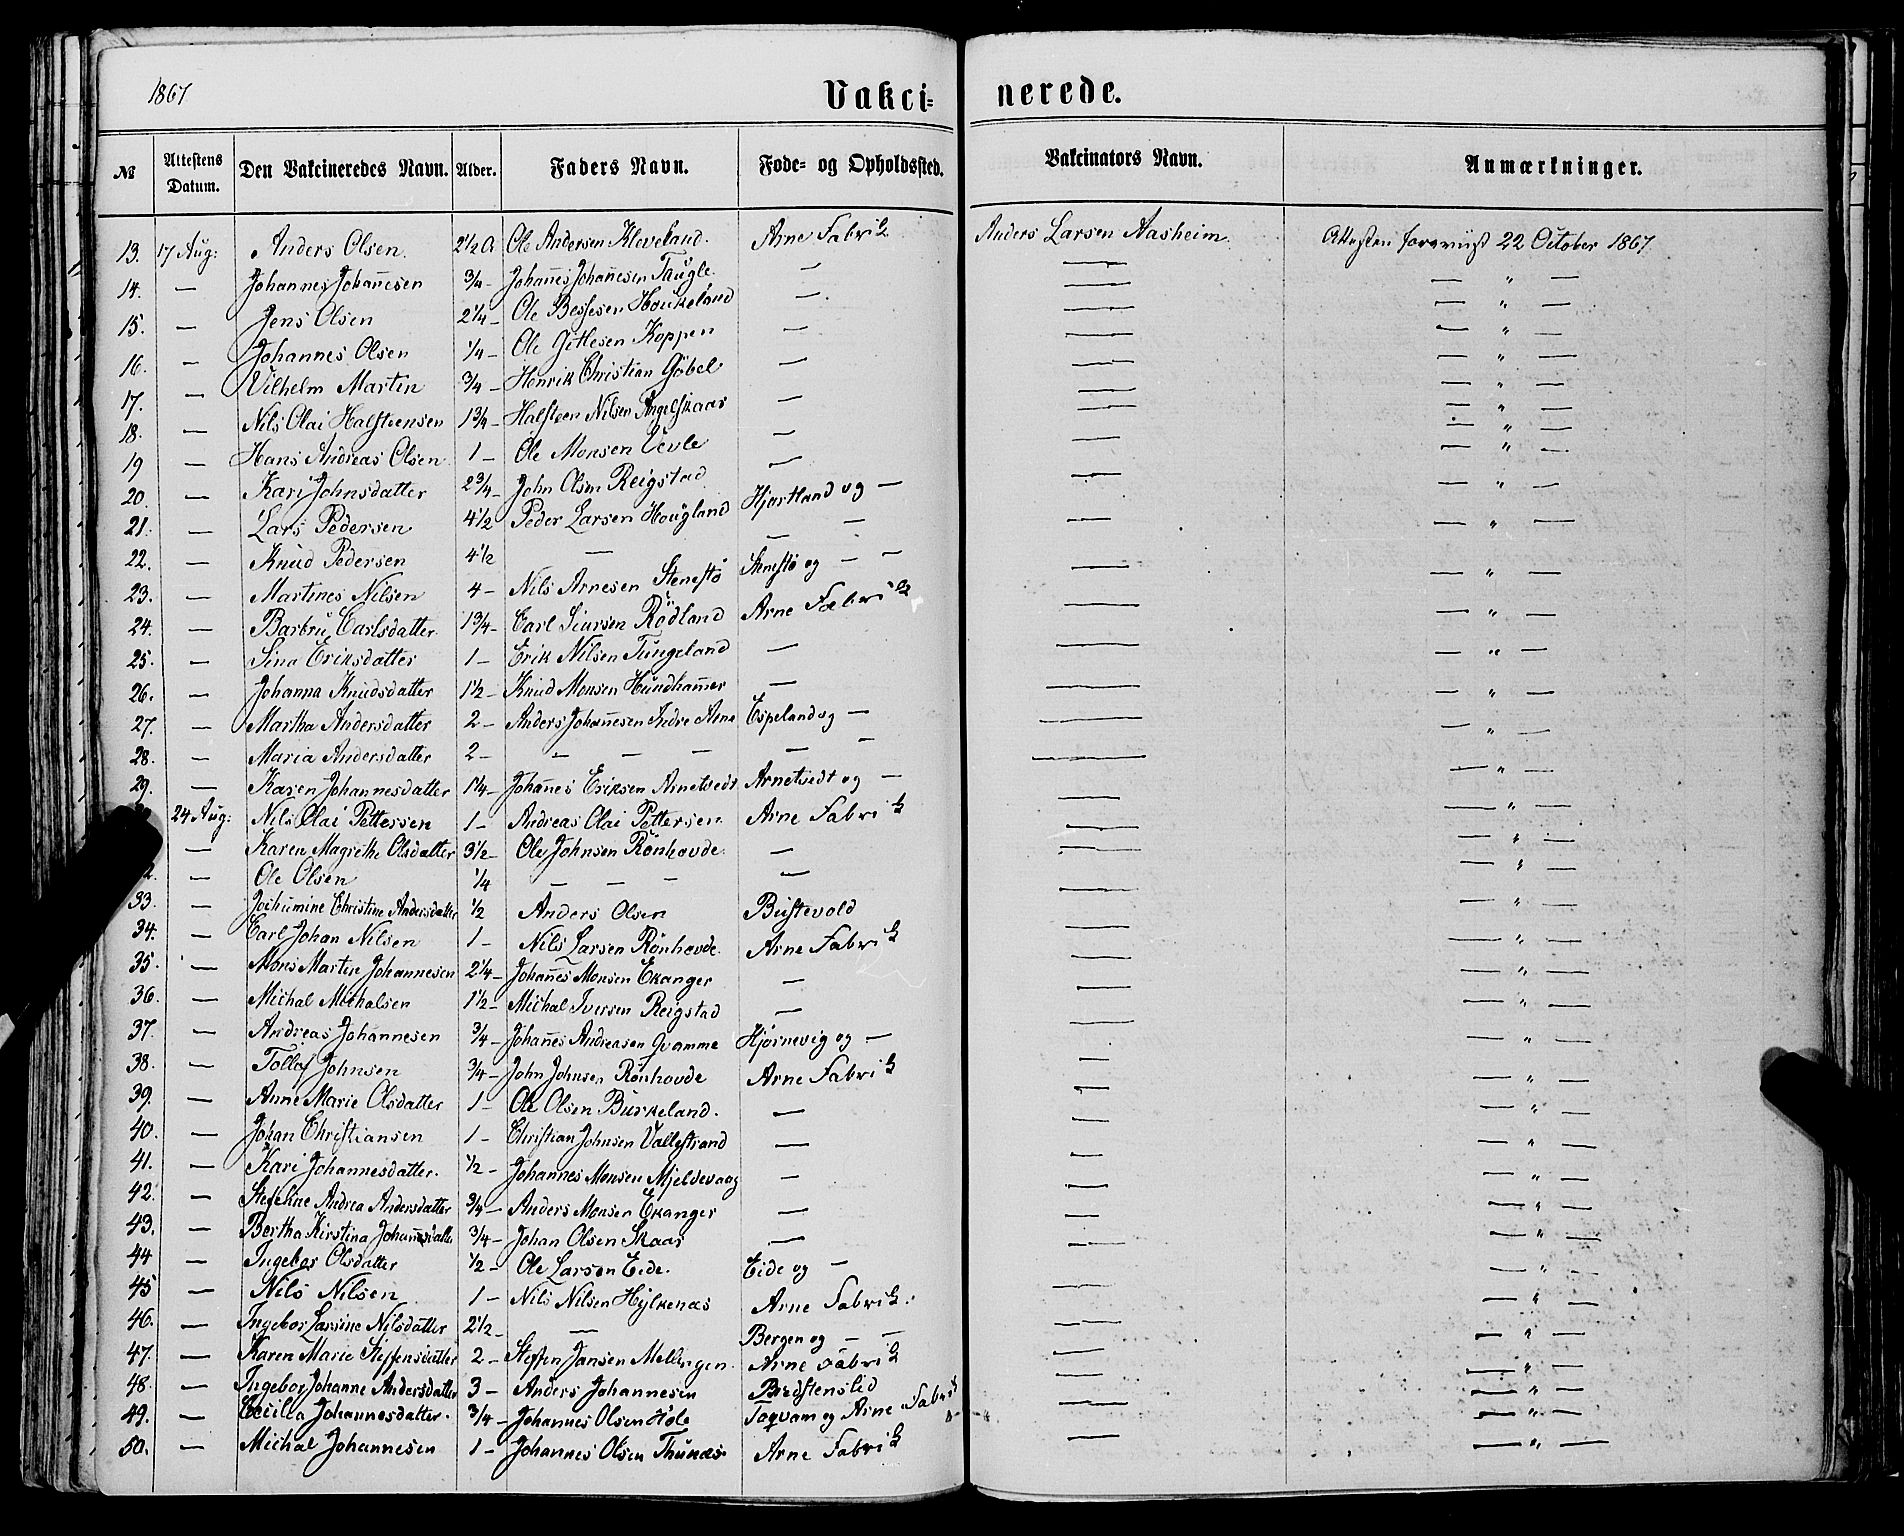 1867
Vakci= nerede.
№ Attestens Datum. Den Vakcineredes Navn. Alder. Faders Navn. Føde- og Opholdssted. Vakcinators Navn. Anmærkninger.
13. 17 Aug: Anders Olsen. 2½ A Ole Andersen Kleveland. Arne Fabrik Anders Larsen Aasheim. Attesten 22 October 1867
14. — Johannes Johañesen ¾ — Johañes Johañesen Taugle. — — — " —
15. — Jens Olsen 2¼ — Ole Bessesen Houkeland — — — " —
16. — Johannes Olsen ¼ — Ole Koppen — — — " —
17. — Vilhelm Martin ¾ — Henrik Christian Göbel — — — " —
18. — Nils Olai Halsteensen 1¾ — Halsteen Nilsen Angelskaar — — — " —
19 — Hans Andreas Olsen 1 — Ole Monsen Vevle — — — " —
20. — Kari Johnsdatter 2¾ — John Olsen Reigstad — — — " —
21. — Lars Pedersen 4½ Peder Larsen Hougland Hjortland og — — — " —
22. — Knud Pedersen 4½ — — — — — " —
23. — Martines Nilsen 4 — Nils Arnesen Stenestö Stenestö og — — — — " —
24. — Barbru Carlsdatter 1¾ — Carl Siursen Rödland Arne Fabrik — — " —
25. — Sina Eriksdatter 1 — Erik Nilsen Tungeland — — — " —
26. — Johanna Knudsdatter 1½ — Knud Monsen Hundhamer — — — " —
27. — Martha Andersdatter 2 — Anders Johañesen Indre Arne Espeland og — — — " —
28. — Maria Andersdatter 2 — — — — — — — — " —
29. — Karen Johannesdatter 1¼ — Johañes Eriksen Arnetvedt Arnetvedt og — — — " —
24 Aug: Nils Olai Pettersen 1 — Andreas Olai Pettersen Arne Fabrik — — " —
— Karen Magrethe Olsdatter 3½ — Ole Johnsen Rönhovde. — — — " —
2. — Ole Olsen ¼ — — — — — — " —
33. — Jochumine Christine Andersdatter ½ Anders Olsen Bustevold — — " —
34. — Carl Johan Nilsen 1 — Nils Larsen Rönhovde. Arne Fabrik — — " —
35. — Mons Martin Johannesen 2¼ — Johañes Monsen Ekanger — — — " —
36. — Michal Michalsen 1½ — Michal Iversen Reigstad — — — " —
37. — Andreas Johannesen ¾ — Johañes Andreasen Qvamme Hjörnevig og — — — " —
38. — Tollef Johnsen ¾ — John Johnsen Rönhovde Arne Fabrik — — " —
39. — Anne Marie Olsdatter 1 — Ole Olsen Burkeland. — — — " —
40. — Johan Christiansen 1 — Christian Johnsen Vallestrand — — — " —
41. — Kari Johannesdatter. ½ — Johannes Monsen Mjeldevaag — — — " —
42. — Andrea Andersdatter ¾ — Anders Monsen Ekanger — — — " —
43. — Bertha Kirstina Johannesdatter ¾ — Johan Olsen Skaar — — — " —
44 — Ingebor Olsdatter ½ — Ole Larsen Eide. Eide og — — — " —
45 — Nils Nilsen 1 — Nils Nilsen Hylkenæs Arne Fabrik. — — " —
46. — Ingebor Larsine Nilsdatter 2½ — — Bergen og — — — — " —
47. — Karen Marie Steffensdatter 2 — Steffen Jansen Mellingen. Arne Fabrik — — " —
48. — Ingebor Johanne Andersdatter 3 — Anders Johannesen Bredstensled — — " —
49. — Cecilia Johannesdatter. ¾ — Johannes Olsen Höle Toqvam og Arne Fabrik — — " —
50. — Michal Johannesen 1 — Johannes Olsen Thunæs Arne Fabrik — — " —